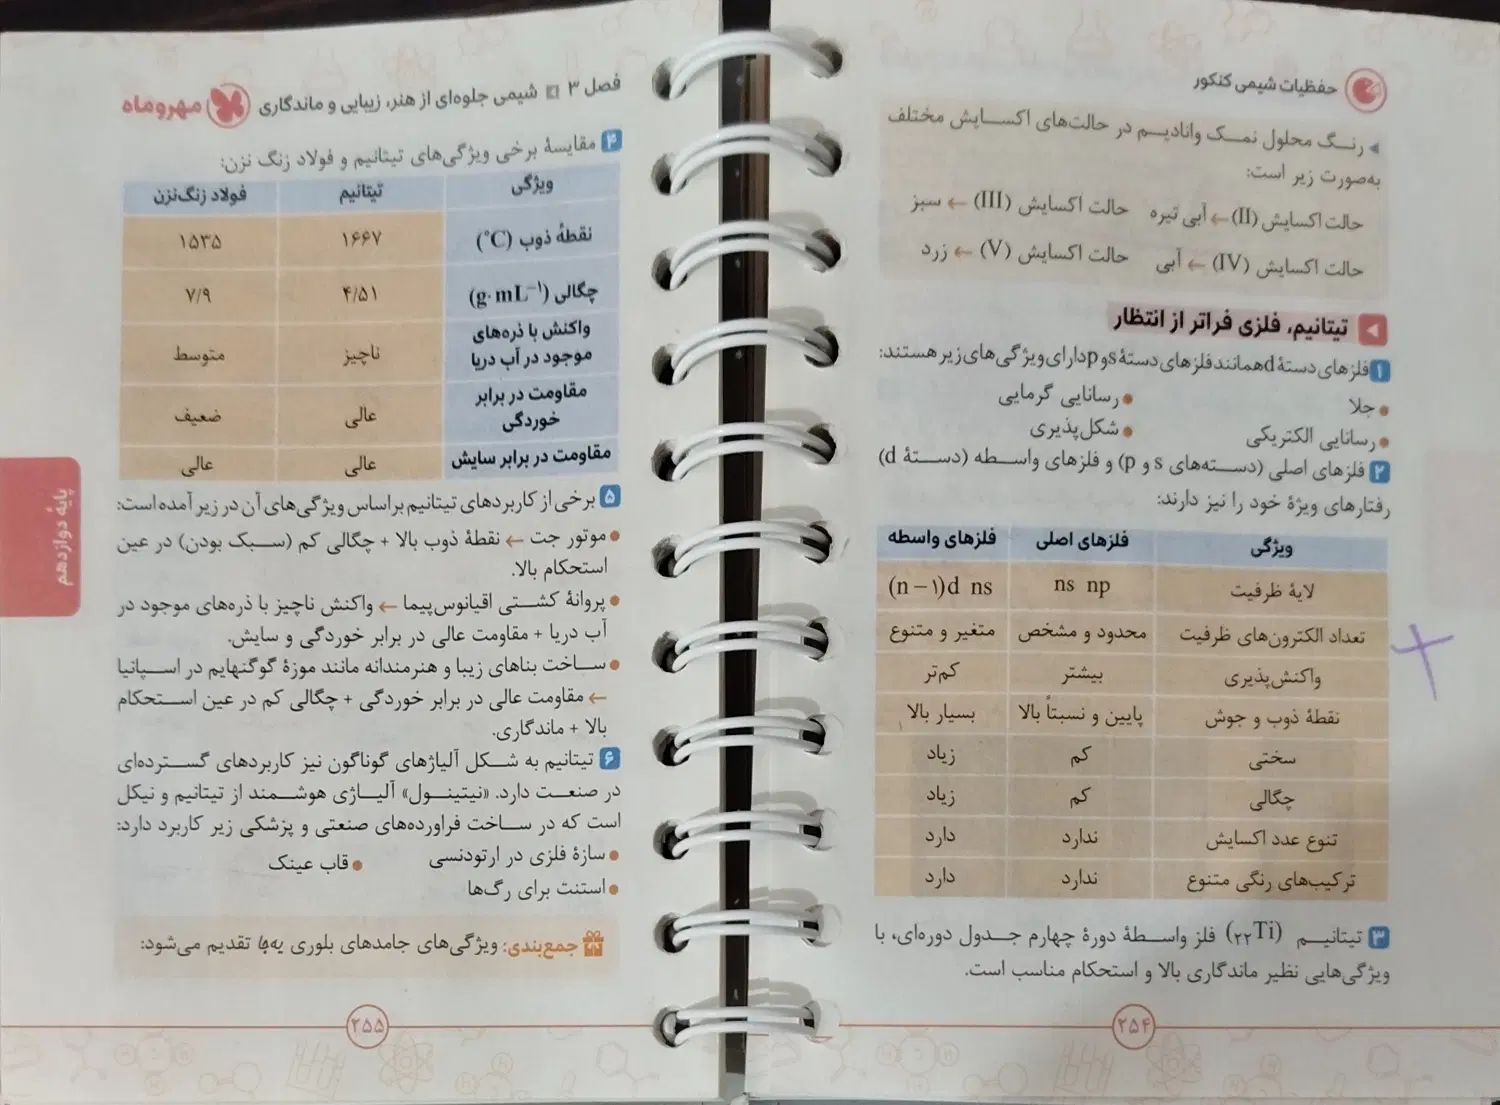 حفظیات شیمی کنکور
رنگ محلول نمک وانادیم در حالت‌های اکسایش مختلف
به‌صورت زیر است:
حالت اکسایش (II) ← آبی تیره حالت اکسایش (III) ← سبز
حالت اکسایش (IV) ← آبی حالت اکسایش (V) ← زرد
تیتانیم، فلزی فراتر از انتظار
۱ فلزهای دستهٔ d همانند فلزهای دستهٔ s و p دارای ویژگی‌های زیر هستند:
• جلا • رسانایی گرمایی
• رسانایی الکتریکی • شکل‌پذیری
۲ فلزهای اصلی (دسته‌های s و p) و فلزهای واسطه (دستهٔ d)
رفتارهای ویژهٔ خود را نیز دارند:
ویژگی فلزهای اصلی فلزهای واسطه
لایهٔ ظرفیت ns np (n − ۱)d ns
تعداد الکترون‌های ظرفیت محدود و مشخص متغیر و متنوع
واکنش‌پذیری بیشتر کم‌تر
نقطهٔ ذوب و جوش پایین و نسبتاً بالا بسیار بالا
سختی کم زیاد
چگالی کم زیاد
تنوع عدد اکسایش ندارد دارد
ترکیب‌های رنگی متنوع ندارد دارد
۳ تیتانیم (۲۲Ti) فلز واسطهٔ دورهٔ چهارم جدول دوره‌ای، با
ویژگی‌هایی نظیر ماندگاری بالا و استحکام مناسب است.
۲۵۴
فصل ۳ شیمی جلوه‌ای از هنر، زیبایی و ماندگاری مهروماه
۴ مقایسهٔ برخی ویژگی‌های تیتانیم و فولاد زنگ نزن:
ویژگی تیتانیم فولاد زنگ‌نزن
نقطهٔ ذوب (°C) ۱۶۶۷ ۱۵۳۵
چگالی (g·mL⁻¹) ۴/۵۱ ۷/۹
واکنش با ذره‌های
موجود در آب دریا ناچیز متوسط
مقاومت در برابر
خوردگی عالی ضعیف
مقاومت در برابر سایش عالی عالی
۵ برخی از کاربردهای تیتانیم براساس ویژگی‌های آن در زیر آمده است:
• موتور جت ← نقطهٔ ذوب بالا + چگالی کم (سبک بودن) در عین
استحکام بالا.
• پروانهٔ کشتی اقیانوس‌پیما ← واکنش ناچیز با ذره‌های موجود در
آب دریا + مقاومت عالی در برابر خوردگی و سایش.
• ساخت بناهای زیبا و هنرمندانه مانند موزهٔ گوگنهایم در اسپانیا
← مقاومت عالی در برابر خوردگی + چگالی کم در عین استحکام
بالا + ماندگاری.
۶ تیتانیم به شکل آلیاژهای گوناگون نیز کاربردهای گسترده‌ای
در صنعت دارد. «نیتینول» آلیاژی هوشمند از تیتانیم و نیکل
است که در ساخت فراورده‌های صنعتی و پزشکی زیر کاربرد دارد:
• سازهٔ فلزی در ارتودنسی • قاب عینک
• استنت برای رگ‌ها
جمع‌بندی: ویژگی‌های جامدهای بلوری یه‌جا تقدیم می‌شود:
پایهٔ دوازدهم
۲۵۵